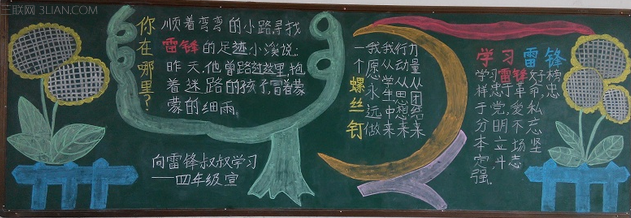 三联网 3LIAN.COM
你在哪里?
顺着弯弯的小路寻找
雷锋的足迹小溪说:
昨天,他曾路过这里,抱
着迷路的孩子,冒着蒙
蒙的细雨。
向雷锋叔叔学习
——四年级宣
力量从团结来
行动从思想来
我从学生中来
我愿永远做
一个螺丝钉
学习雷锋
学习雷锋好榜
样忠于革命忠
于党爱
分明不忘
本立场坚
定斗志
强